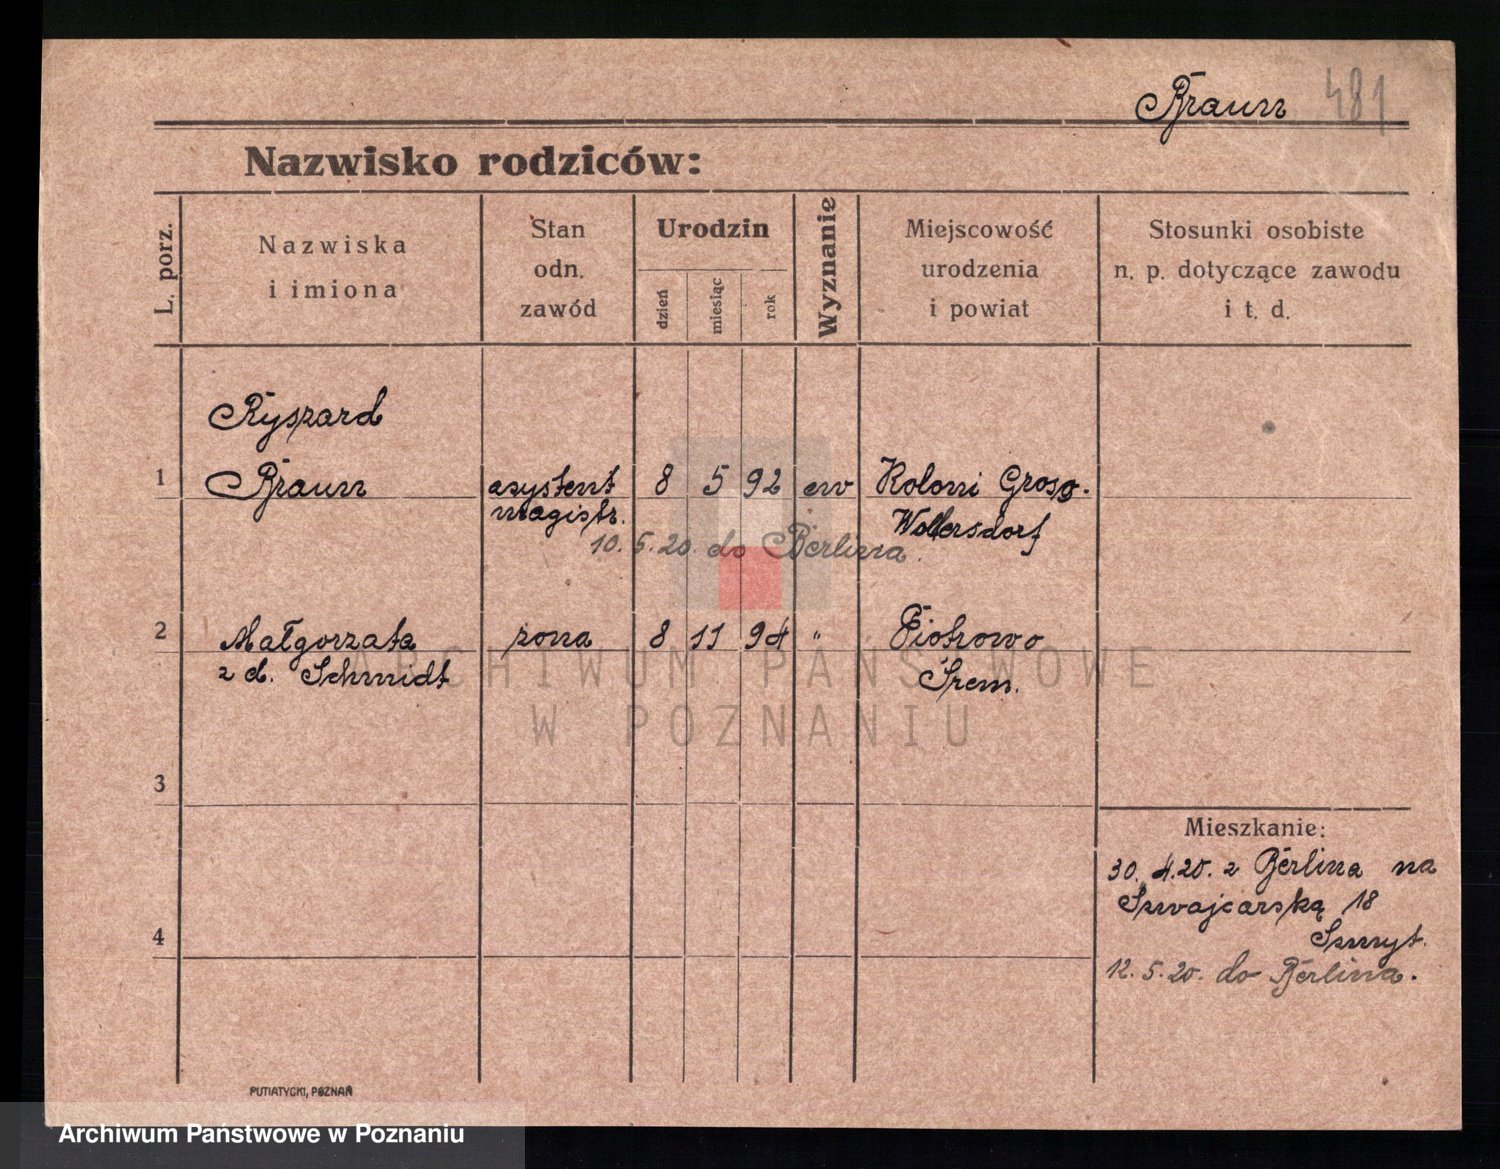 Braun 481
Nazwisko rodziców:
L. porz.
Nazwiska
i imiona
Stan
odn.
zawód
Urodzin
dzień
miesiąc
rok
Wyznanie
Miejscowość
urodzenia
i powiat
Stosunki osobiste
n. p. dotyczące zawodu
i t. d.
Ryszard
1 Braun asystent 8 5 92 ew Koloni Gross.
magistr. Woltersdorf
10. 5. 20. do Berlina.
2 Małgorzata żona 8 11 94 " Piotrowo
z d. Schmidt Śrem.
ARCHIWUM PAŃSTWOWE
W POZNANIU
3
Mieszkanie:
30. 4. 20. z Berlina na
Szwajcarską 18
4
Szmyt.
12. 5. 20. do Berlina.
PUTIATYCKI, POZNAŃ
Archiwum Państwowe w Poznaniu